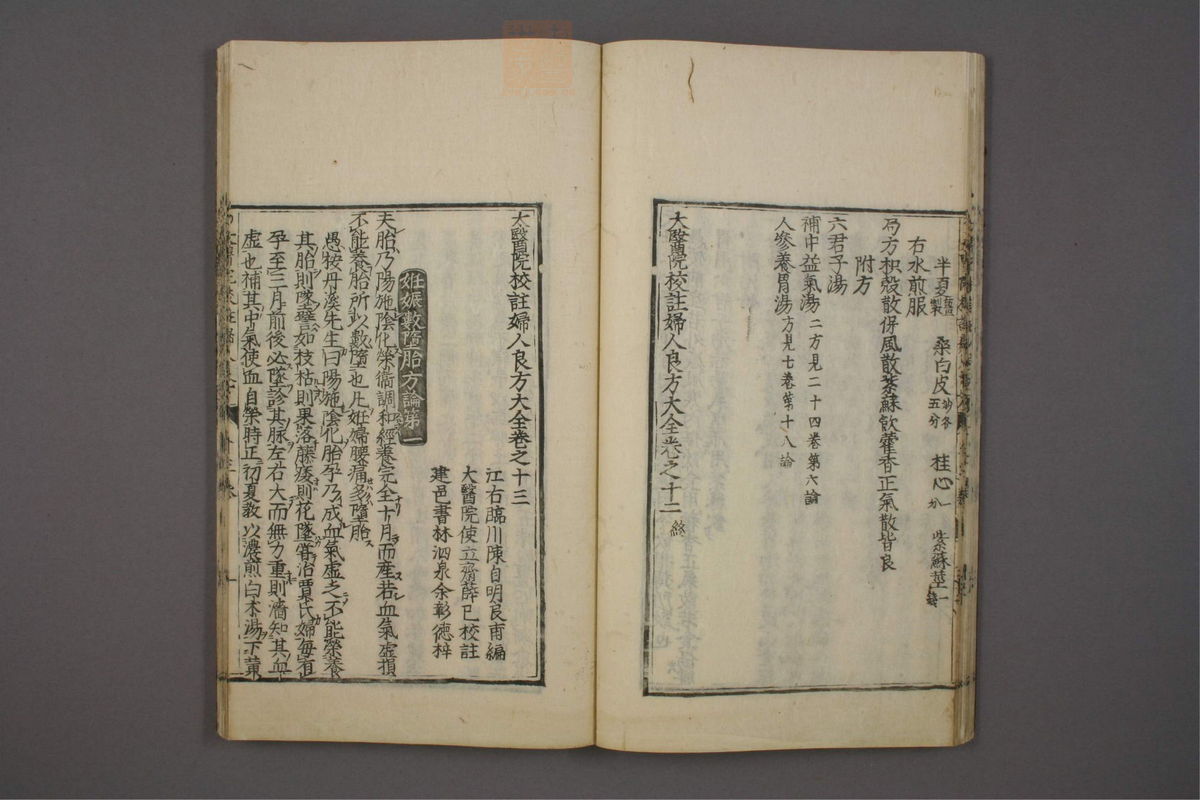 半夏 製 桑白皮 炒各五分 桂心一分 紫蘇莖一錢
右水煎服
芎方枳殼散保風散紫蘇飲藿香正氣散皆良
附方
六君子湯
補中益氣湯 二方見二十四卷第六論
人參養胃湯 方見七卷第十八論
太醫院校註婦人良方大全卷之十二 終
太醫院校註婦人良方大全卷之十三
江右臨川陳自明良甫編
大醫院使立齋薛已校註
建邑書林泗泉余彰德梓
妊娠數墮胎方論第一
夫胎乃陽施陰化榮衛調和經養完全十月而產若血氣虛損
不能養胎所以數墮也凡妊婦腰痛多墮胎
愚按丹溪先生曰陽施陰化胎孕乃成血氣虛乏不能榮養
其胎則墜譬如枝枯則果落藤痿則花墜嘗治賈氏婦每有
孕至三月前後必墜診其脉左右大而無力重則濇知其血
虛也補其中氣使血自榮時正初夏教以濃煎白朮湯下黃